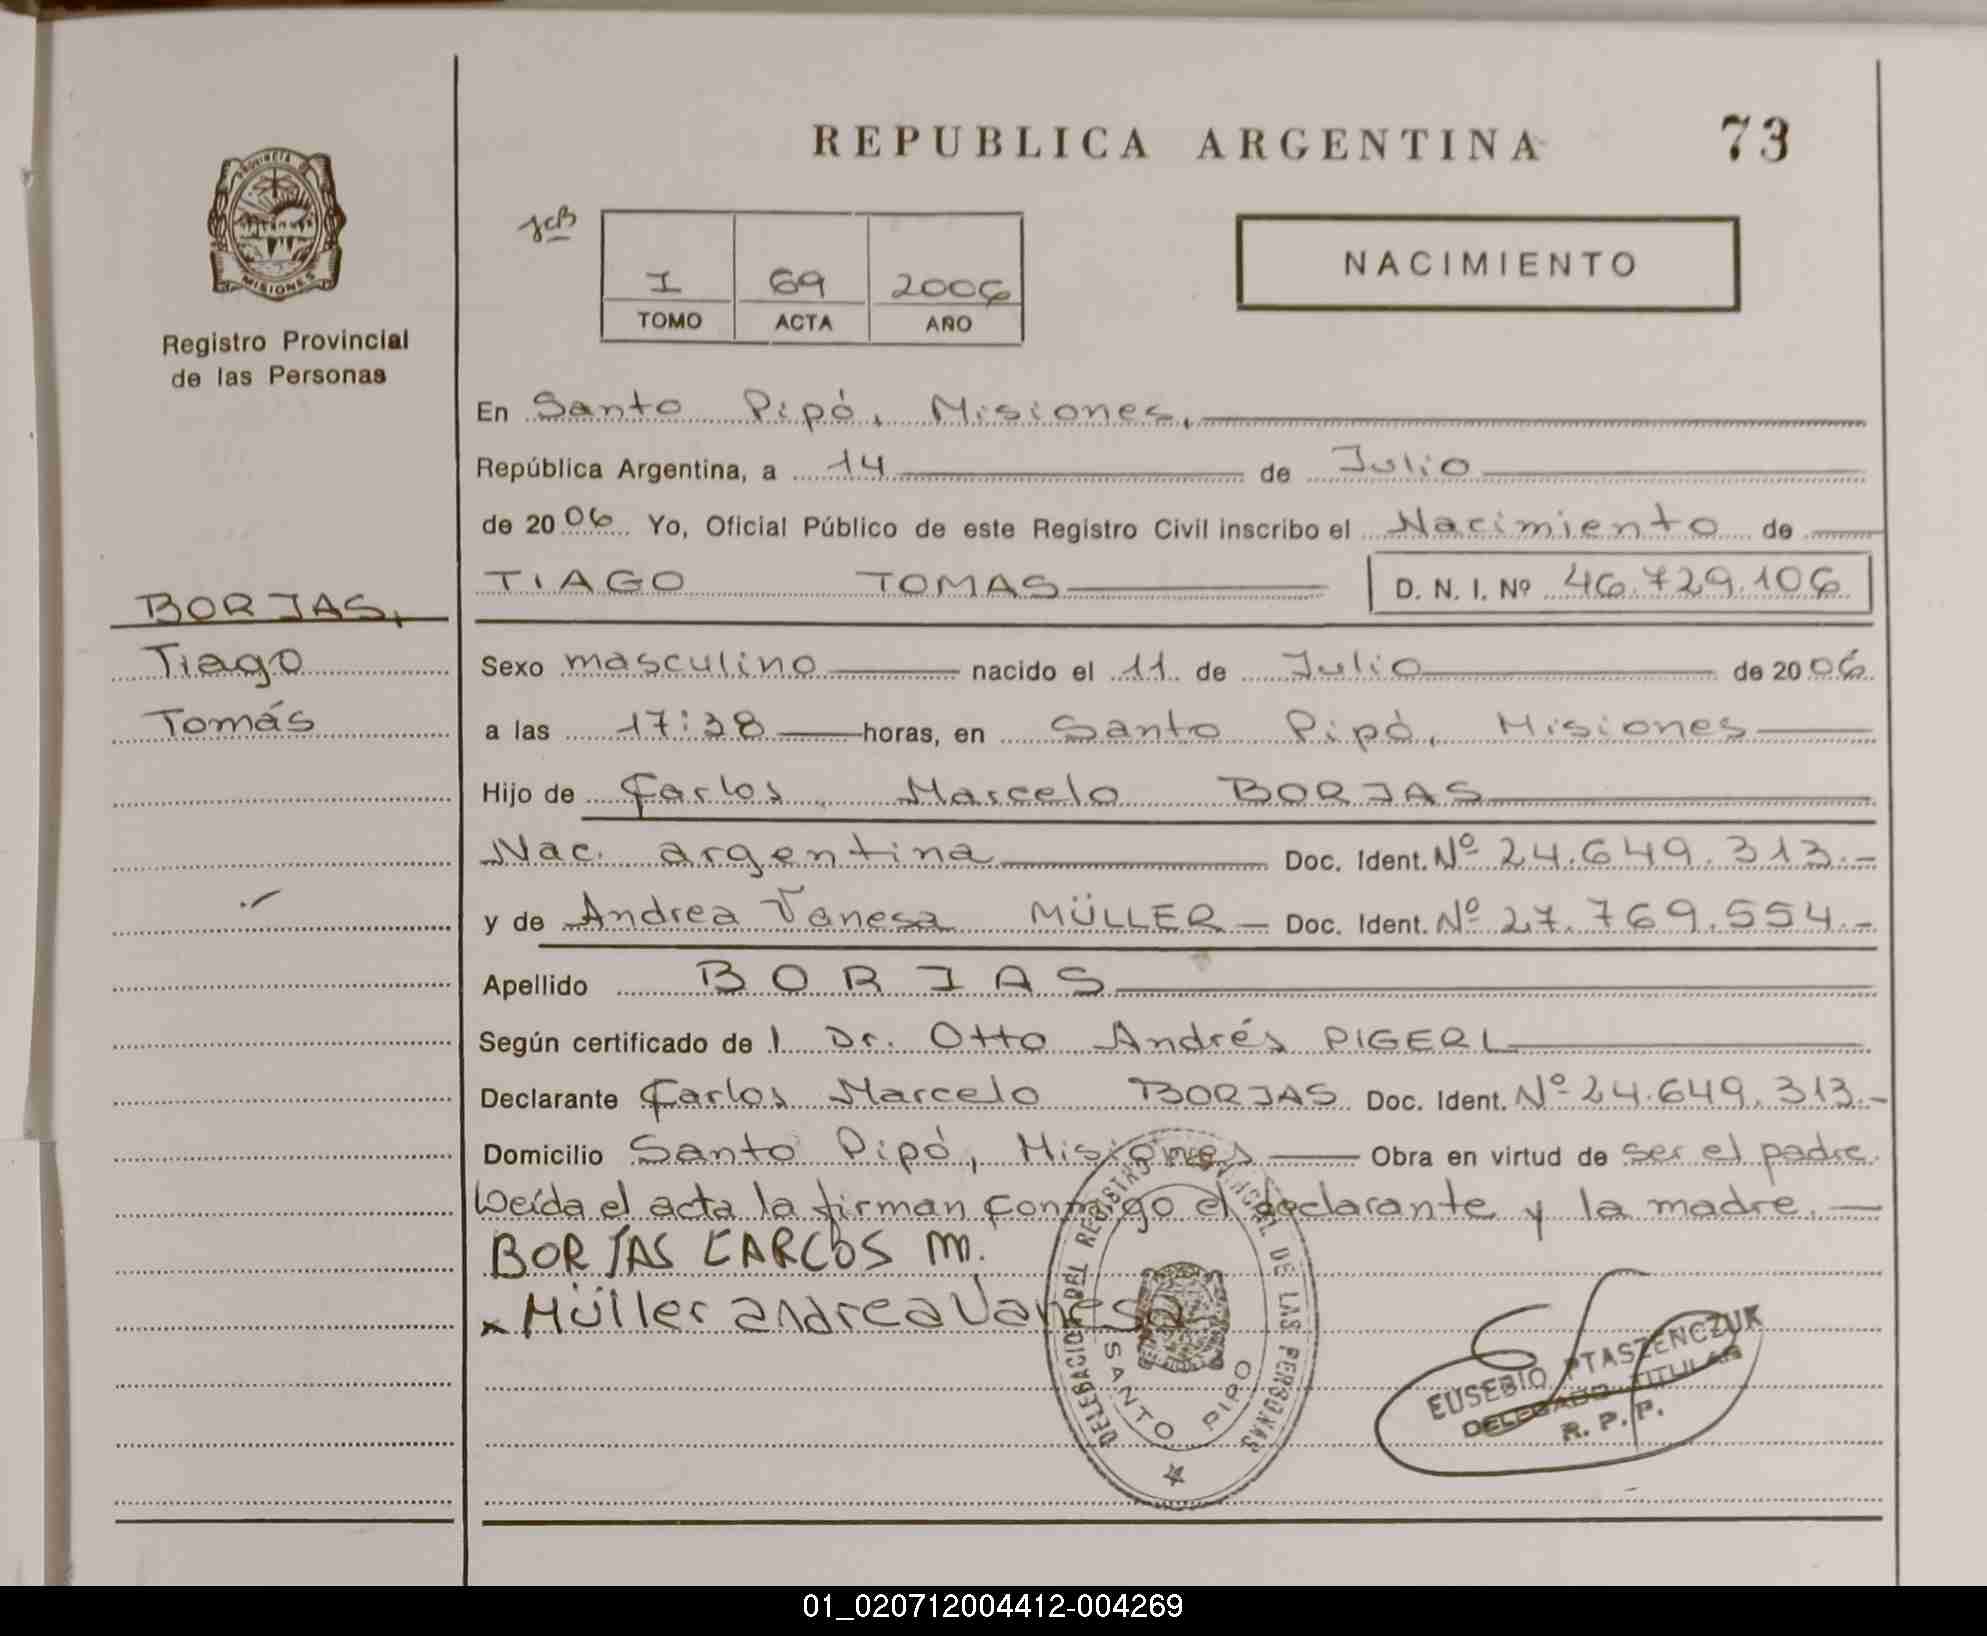 REPUBLICA ARGENTINA 73
PROVINCIA DE MISIONES
Registro Provincial
de las Personas
I 69 2006
TOMO ACTA AÑO
NACIMIENTO
En Santo Pipó, Misiones,
República Argentina, a 14 de Julio
de 2006 Yo, Oficial Público de este Registro Civil inscribo el Nacimiento de
TIAGO TOMAS D. N. I. Nº 46.729.106
BORJAS,
Tiago
Tomás
Sexo masculino nacido el 11 de Julio de 2006
a las 17:38 horas, en Santo Pipó, Misiones
Hijo de Carlos Marcelo BORJAS
Nac. argentina Doc. Ident. Nº 24.649.313.-
y de Andrea Vanesa MÜLLER – Doc. Ident. Nº 27.769.554.-
Apellido BORJAS
Según certificado de l Dr. Otto Andrés PIGERL
Declarante Carlos Marcelo BORJAS Doc. Ident. Nº 24.649.313.-
Domicilio Santo Pipó, Misiones Obra en virtud de ser el padre.
Leída el acta la firman conmigo el declarante y la madre.
BORJAS CARLOS M.
x Müller andrea Vanesa
DELEGACION DEL REGISTRO PROVINCIAL DE LAS PERSONAS
SANTO PIPO
EUSEBIO PTASZENCZUK
DELEGADO TITULAR
R. P. P.
01_020712004412-004269